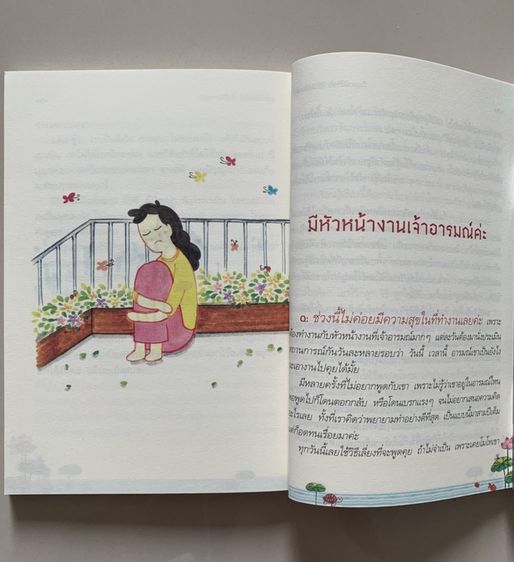 มีหัวหน้างานเจ้าอารมณ์ค่ะ
Q: ช่วงนี้ไม่ค่อยมีความสุขในที่ทำงานเลยค่ะ เพราะ
ต้องทำงานกับหัวหน้างานที่เจ้าอารมณ์มากๆ แต่ละวันต้องมานั่งประเมิน
สถานการณ์กันวันละหลายรอบว่า วันนี้ เวลานี้ อารมณ์เขาเป็นยังไง
จะเอางานไปคุยได้มั้ย
มีหลายครั้งที่ไม่อยากพูดกับเขา เพราะไม่รู้ว่าเขาอยู่ในอารมณ์ไหน
พอพูดไปก็โดนตอกกลับ หรือโดนเบรกแรงๆ จนไม่อยากเสนอความคิด
อะไรเลย ทั้งที่เราคิดว่าพยายามทำอย่างดีที่สุด เป็นแบบนี้มาสามปีเต็ม
แต่ก็อดทนเรื่อยมาค่ะ
ทุกวันนี้เลยใช้วิธีเลี่ยงที่จะพูดคุย ถ้าไม่จำเป็น เพราะเคยโมโหเขา